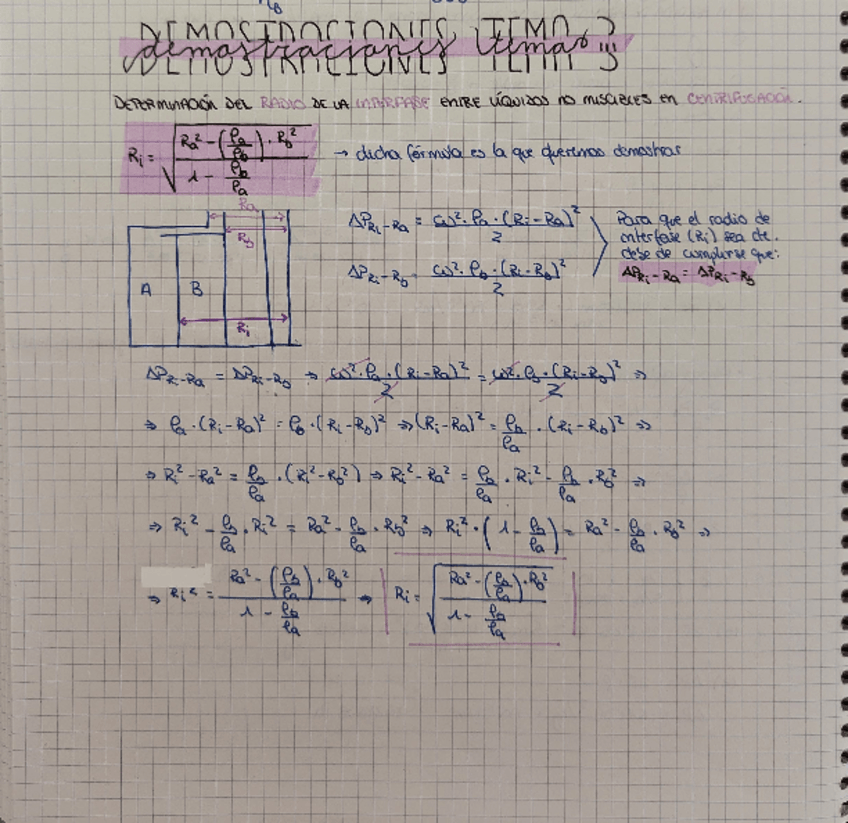 DEMOSTRACIONES TEMA 3
demostraciones temas !!!
DETERMINACIÓN DEL RADIO DE LA INTERFASE ENTRE LÍQUIDOS NO MISCIBLES EN CENTRIFUGACIÓN.
Ri = √((Ra² - (ρb/ρa) · Rb²) / (1 - ρb/ρa)) → dicha fórmula es la que queremos demostrar
Ra
Rb
A B
Ri
ΔP_Ri-Ra = ω² · ρa · (Ri - Ra)² / 2
ΔP_Ri-Rb = ω² · ρb · (Ri - Rb)² / 2
Para que el radio de
interfase (Ri) sea cte.
debe de cumplirse que:
ΔP_Ri-Ra = ΔP_Ri-Rb
ΔP_Ri-Ra = ΔP_Ri-Rb ⇒ ω² · ρa · (Ri - Ra)² / 2 = ω² · ρb · (Ri - Rb)² / 2 ⇒
⇒ ρa · (Ri - Ra)² = ρb · (Ri - Rb)² ⇒ (Ri - Ra)² = ρb/ρa · (Ri - Rb)² ⇒
⇒ Ri² - Ra² = ρb/ρa · (Ri² - Rb²) ⇒ Ri² - Ra² = ρb/ρa · Ri² - ρb/ρa · Rb² ⇒
⇒ Ri² - ρb/ρa · Ri² = Ra² - ρb/ρa · Rb² ⇒ Ri² · (1 - ρb/ρa) = Ra² - ρb/ρa · Rb² ⇒
⇒ Ri² = (Ra² - (ρb/ρa) · Rb²) / (1 - ρb/ρa) ⇒ Ri = √((Ra² - (ρb/ρa) · Rb²) / (1 - ρb/ρa))